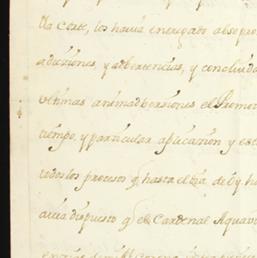 la Corte, los havia entregado
adiciones, y advertencias, y concluid
ultimas animadversiones el Promot
tiempo, y particular aplicacion y est
todos los procesos q̃ hasta el dia de oy h
avia dispuesto q̃ el Cardenal Aquavi